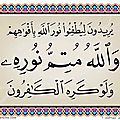 يُرِيدُونَ لِيُطْفِئُوا نُورَ اللَّهِ بِأَفْوَاهِهِمْ
وَاللَّهُ مُتِمُّ نُورِهِ
وَلَوْ كَرِهَ الْكَافِرُونَ